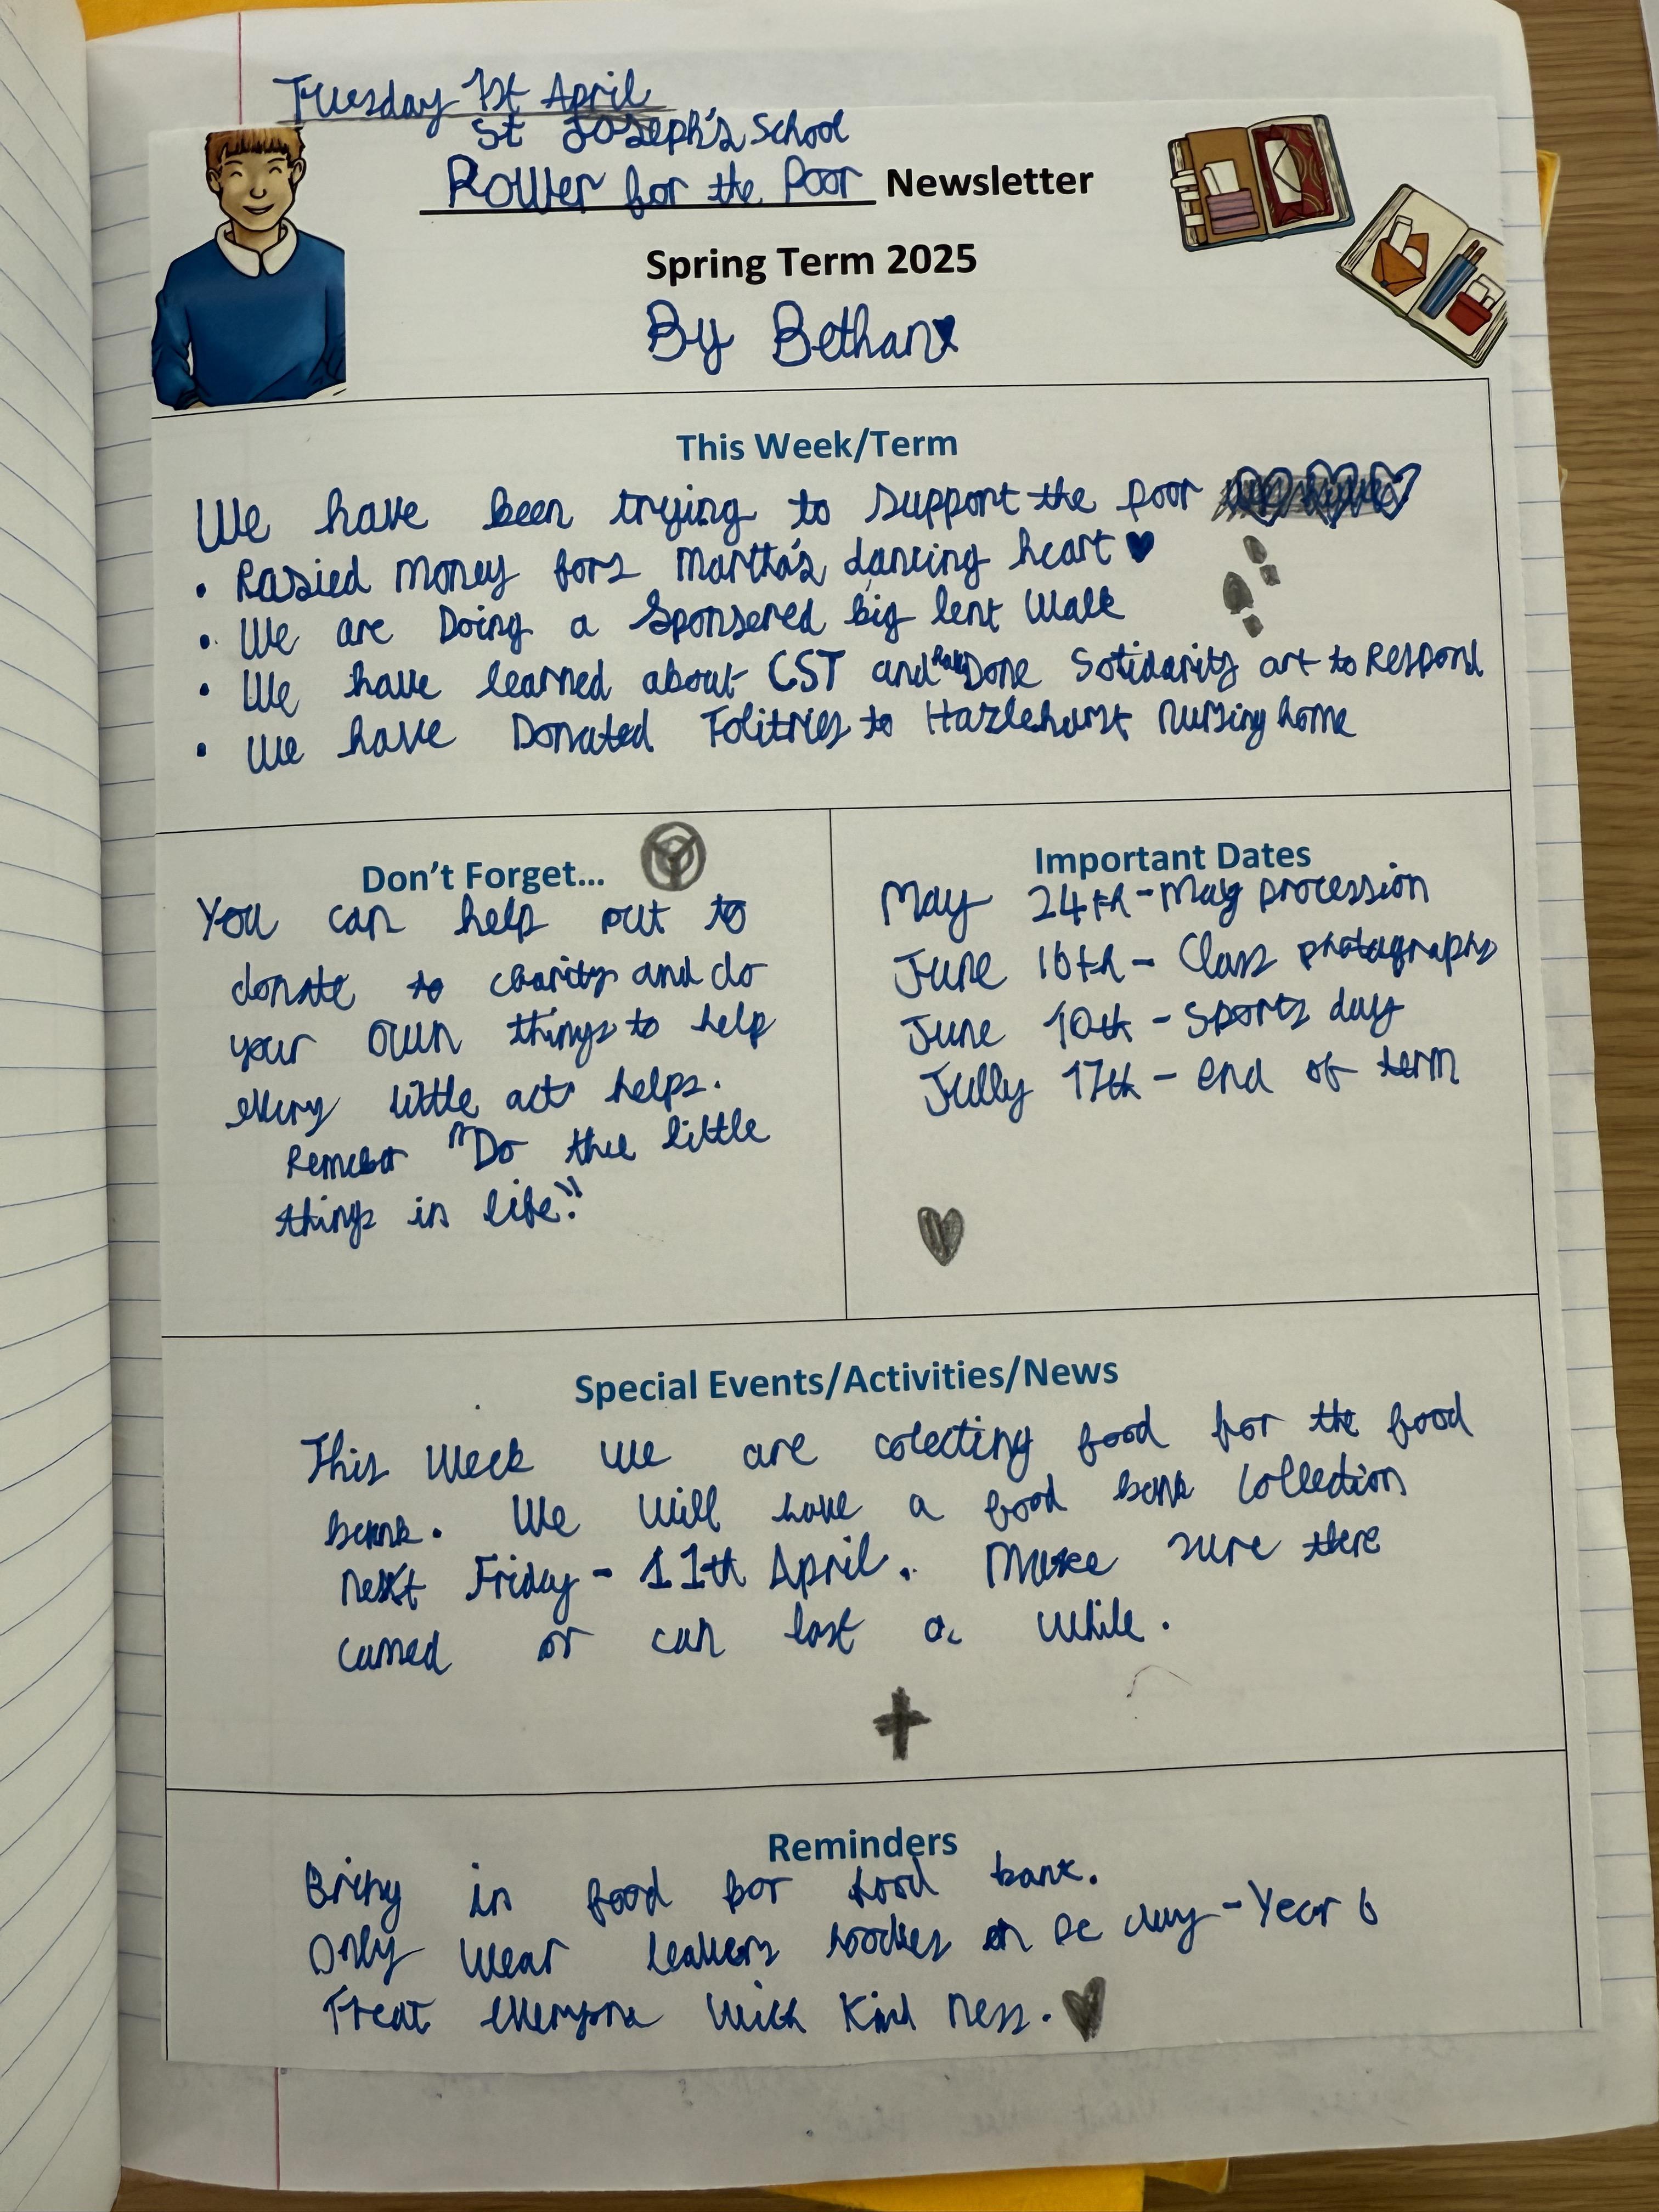 Tuesday 1st April
St Joseph's School
Power for the Poor Newsletter
Spring Term 2025
By Bethan
This Week/Term
We have been trying to support the poor
• Rasied money for Martha's dancing heart
• We are Doing a Sponsered big lent Walk
• We have learned about CST and have Done Solidarity art to Respond
• We have Donated to Hazlehurst Nursing home
Don't Forget...
You can help out to
donate to charity and do
your own things to help
every little act helps.
"Do the little
things in life".
Important Dates
May 24th - May procession
June 16th - Class photographs
June 10th - Sports day
Jully 17th - end of term
Special Events/Activities/News
This Week we are colecting food for the food
bank. We Will have a food bank collection
next Friday - 11th April. Make sure there
canned or can last a while.
Reminders
Bring in food for food bank.
Only wear leavers hoodies on PE day - Year 6
Treat everyone with Kind ness.